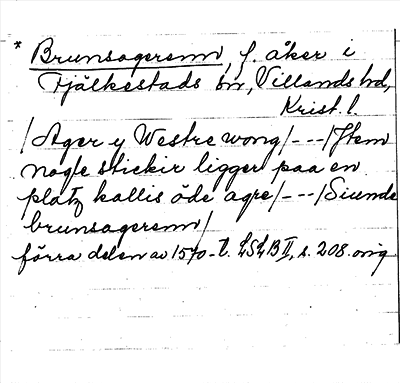 * Brunsagerenn, f. åker i
Fjälkestads sn, Villands hd,
Krist. l.
/Ager y Westre wong/---/Jtem
nogle stickir ligger paa en
platz kallis öde agre/---/Siunde
brunsagerenn/
förra delen av 1570-t. LSLB II, s. 208. orig